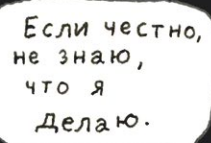 Если честно,
не знаю,
что я
делаю.